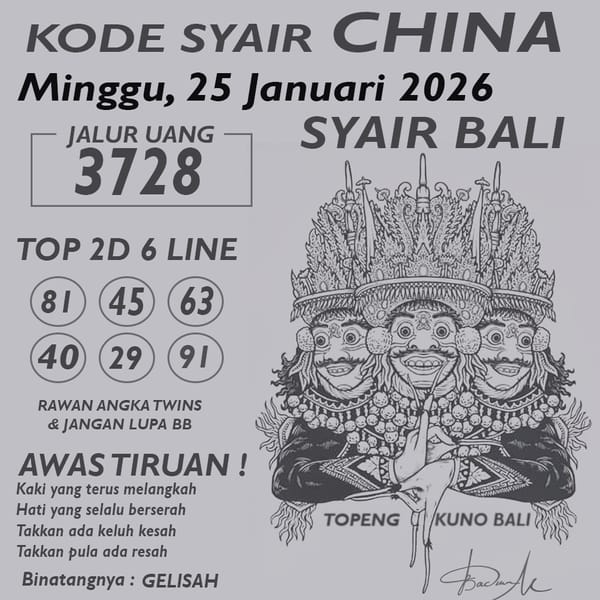 KODE SYAIR CHINA
Minggu, 25 Januari 2026
JALUR UANG
3728
SYAIR BALI
TOP 2D 6 LINE
81 45 63
40 29 91
RAWAN ANGKA TWINS
& JANGAN LUPA BB
AWAS TIRUAN !
Kaki yang terus melangkah
Hati yang selalu berserah
Takkan ada keluh kesah
Takkan pula ada resah
Binatangnya : GELISAH
TOPENG KUNO BALI